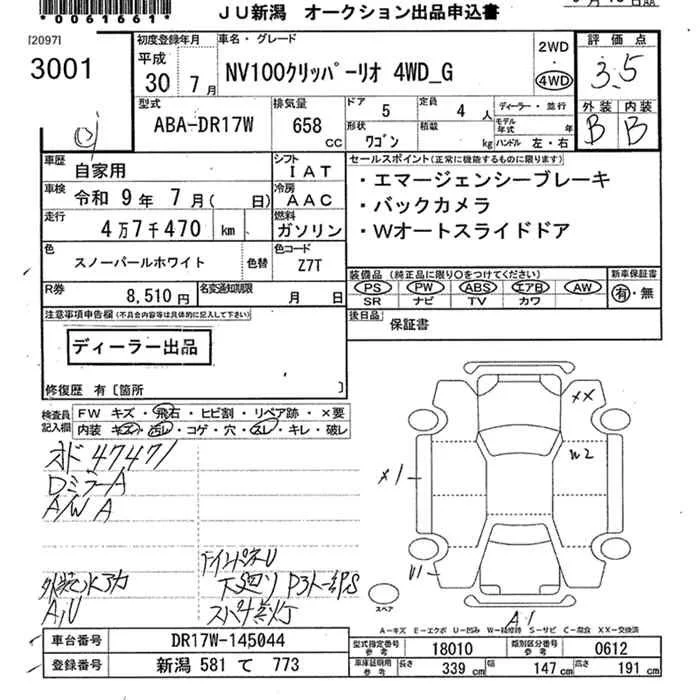 *0061661*
JU新潟 オークション出品申込書
[2097]
3001
初度登録年月
平成
30 年 7 月
車名・グレード
NV100クリッパーリオ 4WD_G
2WD
4WD
評価点
3.5
外装 内装
B B
型式
ABA-DR17W
排気量
658 CC
ドア 5 定員 4 人
形状 ワゴン 積載 kg
ディーラー・並行
モデル年式 年
ハンドル 左・右
車歴 自家用
シフト IAT
車検 令和 9年 7月( 日)
冷房 AAC
走行 4万7千470 km
燃料 ガソリン
色 スノーパールホワイト 色替
色コード Z7T
R券 8,510円
名変通知期限 月 日
セールスポイント(正常に機能するものに限ります)
・エマージェンシーブレーキ
・バックカメラ
・Wオートスライドドア
装備品(純正品に限り○をつけてください)
PS PW ABS エアB AW
SR ナビ TV カワ
新車保証書
有・無
後日品 保証書
注意事項申告欄(不具合内容等は具体的に記入して下さい)
ディーラー出品
修復歴 有〔箇所 〕
検査員記入欄
FW キズ・飛石・ヒビ割・リペア跡・×要
内装 キズ・汚レ・コゲ・穴・スレ・キレ・破レ
オド 47471
DミラーA
A/W A
A,U
下廻り
XX
W2
X1
U1
A1
スペア
A-キズ E-エクボ U-凹み W-補修跡 S-サビ C-腐食 XX-交換済
車台番号 DR17W-145044
登録番号 新潟 581 て 773
型式指定番号 参考 18010
類別区分番号 参考 0612
車庫証明用 参考 長さ 339 cm 幅 147 cm 高さ 191 cm